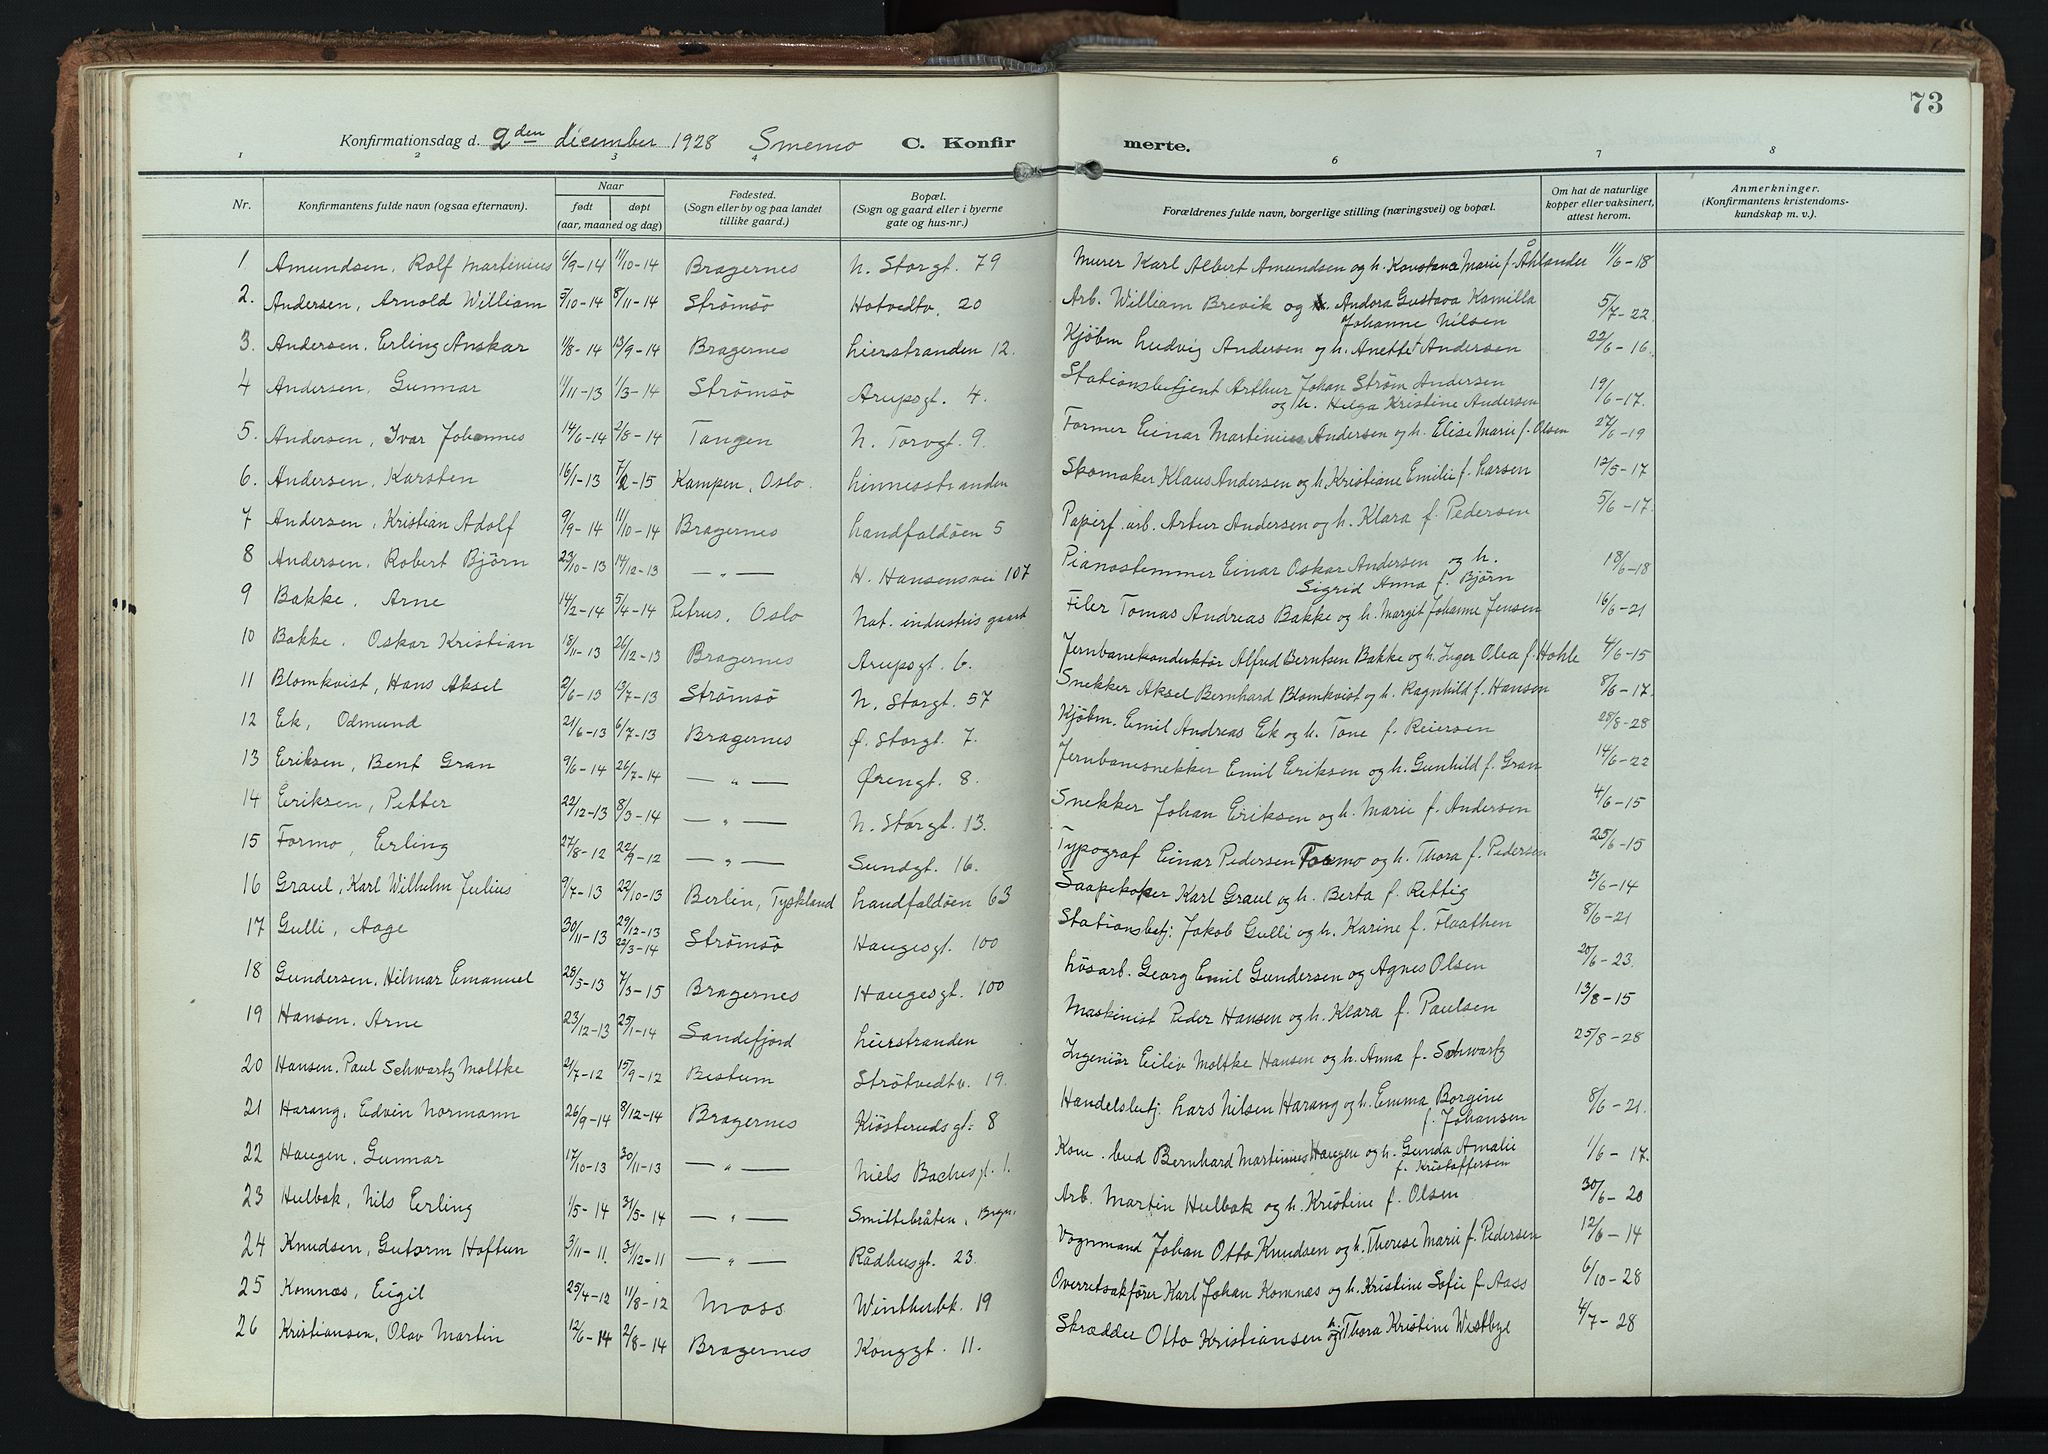 73
Konfirmationsdag d. 2den december 1928 Smemo C. Konfirmerte.
1 2 3 4 6 7 8
Nr. Konfirmantens fulde navn (ogsaa efternavn). Naar født døpt (aar, maaned og dag) Fødested. (Sogn eller by og paa landet tillike gaard.) Bopæl. (Sogn og gaard eller i byerne gate og hus-nr.) Forældrenes fulde navn, borgerlige stilling (næringsvei) og bopæl. Om hat de naturlige kopper eller vaksinert, attest herom. Anmerkninger. (Konfirmantens kristendoms-kundskap m. v.).
1 Amundsen, Rolf Martinius 6/9-14 11/10-14 Bragernes N. Storgt. 79 Murer Karl Albert Amundsen og h. Konstance Marie f. Åhlander 11/6-18
2. Andersen, Arnold William 5/10-14 8/11-14 Strømsø Hotvedtv. 20 Arb. William Brevik og Andora Gustava Kamilla Johanne Nilsen 5/7-22
3. Andersen, Erling Anskar 11/8-14 13/9-14 Bragernes Lierstranden 12. Kjøbm Ludvig Andersen og h. Anette Andersen 22/6-16
4 Andersen, Gunnar 11/11-13 1/3-14 Strømsø Arupsgt. 4. Stationsbetjent Arthur Johan Strøm Andersen og h. Helga Kristine Andersen 19/6-17.
5. Andersen, Ivar Johannes 14/6-14 2/8-14 Tangen N. Torvgt. 9 Former Einar Martinius Andersen og h. Elise Marie f. Olsen 27/6-19
6. Andersen, Karsten 16/1-13 7/2-15 Kampen, Oslo. Linnesstranden Skomaker Klaus Andersen og h. Kristiane Emilie f. Larsen 12/5-17
7 Andersen, Kristian Adolf 9/9-14 11/10-14 Bragernes Landfaldøen 5 Papirf. arb. Artur Andersen og h. Klara f. Pedersen 5/6-17.
8 Andersen, Robert Bjørn 23/10-13 14/12-13 — " — H. Hansensvei 107 Pianostemmer Einar Oskar Andersen og h. Sigrid Anna f. Bjørn 18/6-18
9 Bakke, Arne 14/2-14 5/4-14 Petrus, Oslo Nat. industris gaard Filer Tomas Andreas Bakke og h. Margit Johanne Jensen 16/6-21
10 Bakke, Oskar Kristian 18/11-13 26/12-13 Bragernes Arupsgt. 6. Jernbanekonduktør Alfred Berntsen Bakke og h. Inger Olea f. Hohle 4/6-15
11 Blomkvist, Hans Aksel 2/6-13 13/7-13 Strømsø N. Storgt. 57 Snekker Aksel Bernhard Blomkvist og h. Ragnhild f. Hansen 8/6-17.
12 Ek, Odmund 21/6-13 6/7-13 Bragernes Ø. Storgt. 7. Kjøbm. Emil Andreas Ek og h. Tone f. Reiersen 28/8-28
13 Eriksen, Bent Gran 9/6-14 26/7-14 — " — Ørengt. 8. Jernbanesnekker Emil Eriksen og h. Gunhild f. Gran 14/6-22
14 Eriksen, Petter 22/12-13 8/3-14 — " — N. Storgt. 13. Snekker Johan Eriksen og h. Marie f. Andersen 4/6-15
15 Formo, Erling 27/8-12 22/9-12 — " — Sundgt. 16. Typograf Einar Pedersen Formo og h. Thora f. Pedersen 25/6-15
16 Graul, Karl Wilhelm Julius 9/7-13 22/10-13 Berlin, Tyskland Landfaldøen 63 Saapekoker Karl Graul og h. Berta f. Rettig 3/6-14
17 Gulli, Aage 30/11-13 29/12-13 22/3-14 Strømsø Haugesgt. 100 Stationsbetj. Jakob Gulli og h. Karine f. Flaathen 8/6-21
18 Gundersen, Hilmar Emanuel 25/5-13 7/3-15 Bragernes Haugesgt. 100 Løsarb. Georg Emil Gundersen og Agnes Olsen 20/6-23.
19 Hansen, Arne 23/12-13 25/1-14 Sandefjord Lierstranden Maskinist Peder Hansen og h. Klara f. Paulsen 13/8-15
20 Hansen, Paul Schwartz Moltke 21/7-12 15/9-12 Bestum Strøtvedtv. 19. Ingeniør Eiliv Moltke Hansen og h. Anna f. Schwartz 25/8-28
21 Harang, Edvin Normann 26/9-14 8/12-14 Bragernes Kiøsterudsgt. 8 Handelsbetj. Lars Nilsen Harang og h. Emma Borgine f. Johansen 8/6-21.
22 Haugen, Gunnar 17/10-13 30/11-13 — " — Niels Bachesgt. 1. Kom. bud Bernhard Martinius Haugen og h. Gunda Amalie f. Kristoffersen 1/6-17.
23 Hulbak, Nils Erling 1/5-14 31/5-14 — " — Smittebråten, Brgn. Arb. Martin Hulbak og h. Kristine f. Olsen 30/6-20
24 Knudsen, Gutorm Hoftun 3/11-11. 31/12-11 — " — Rådhusgt. 23. Vognmand Johan Otto Knudsen og h. Therese Marie f. Pedersen 12/6-14
25 Komnæs, Eigil 25/4-12 11/8-12 Moss Wintherbk. 19 Overretsakfører Karl Johan Komnæs og h. Kristine Sofie f. Aass 6/10-28
26 Kristiansen, Olav Martin 12/6-14 2/8-14 Bragernes Konggt. 11. Skrædder Otto Kristiansen og h. Thora Kristine Westbye 4/7-28